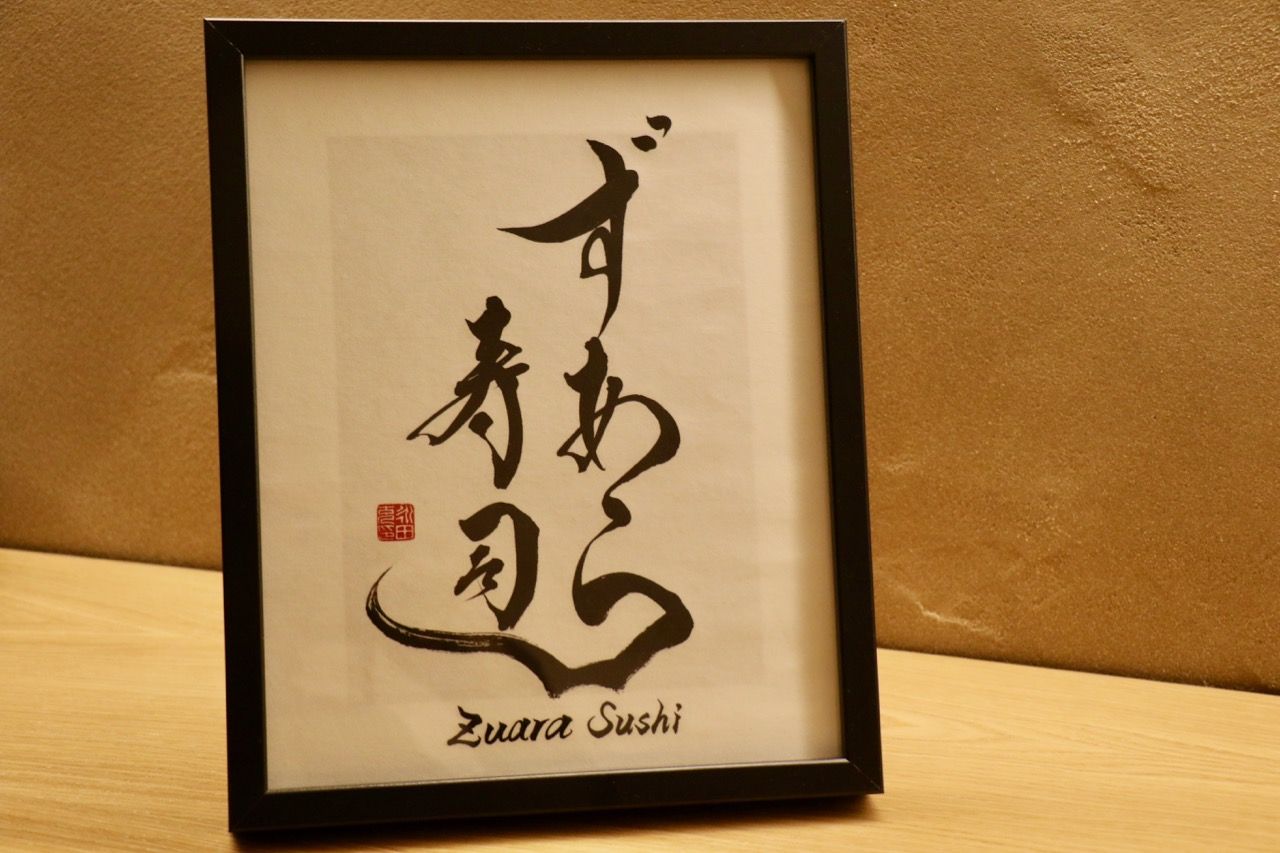 ずあら
寿司
Zuara Sushi